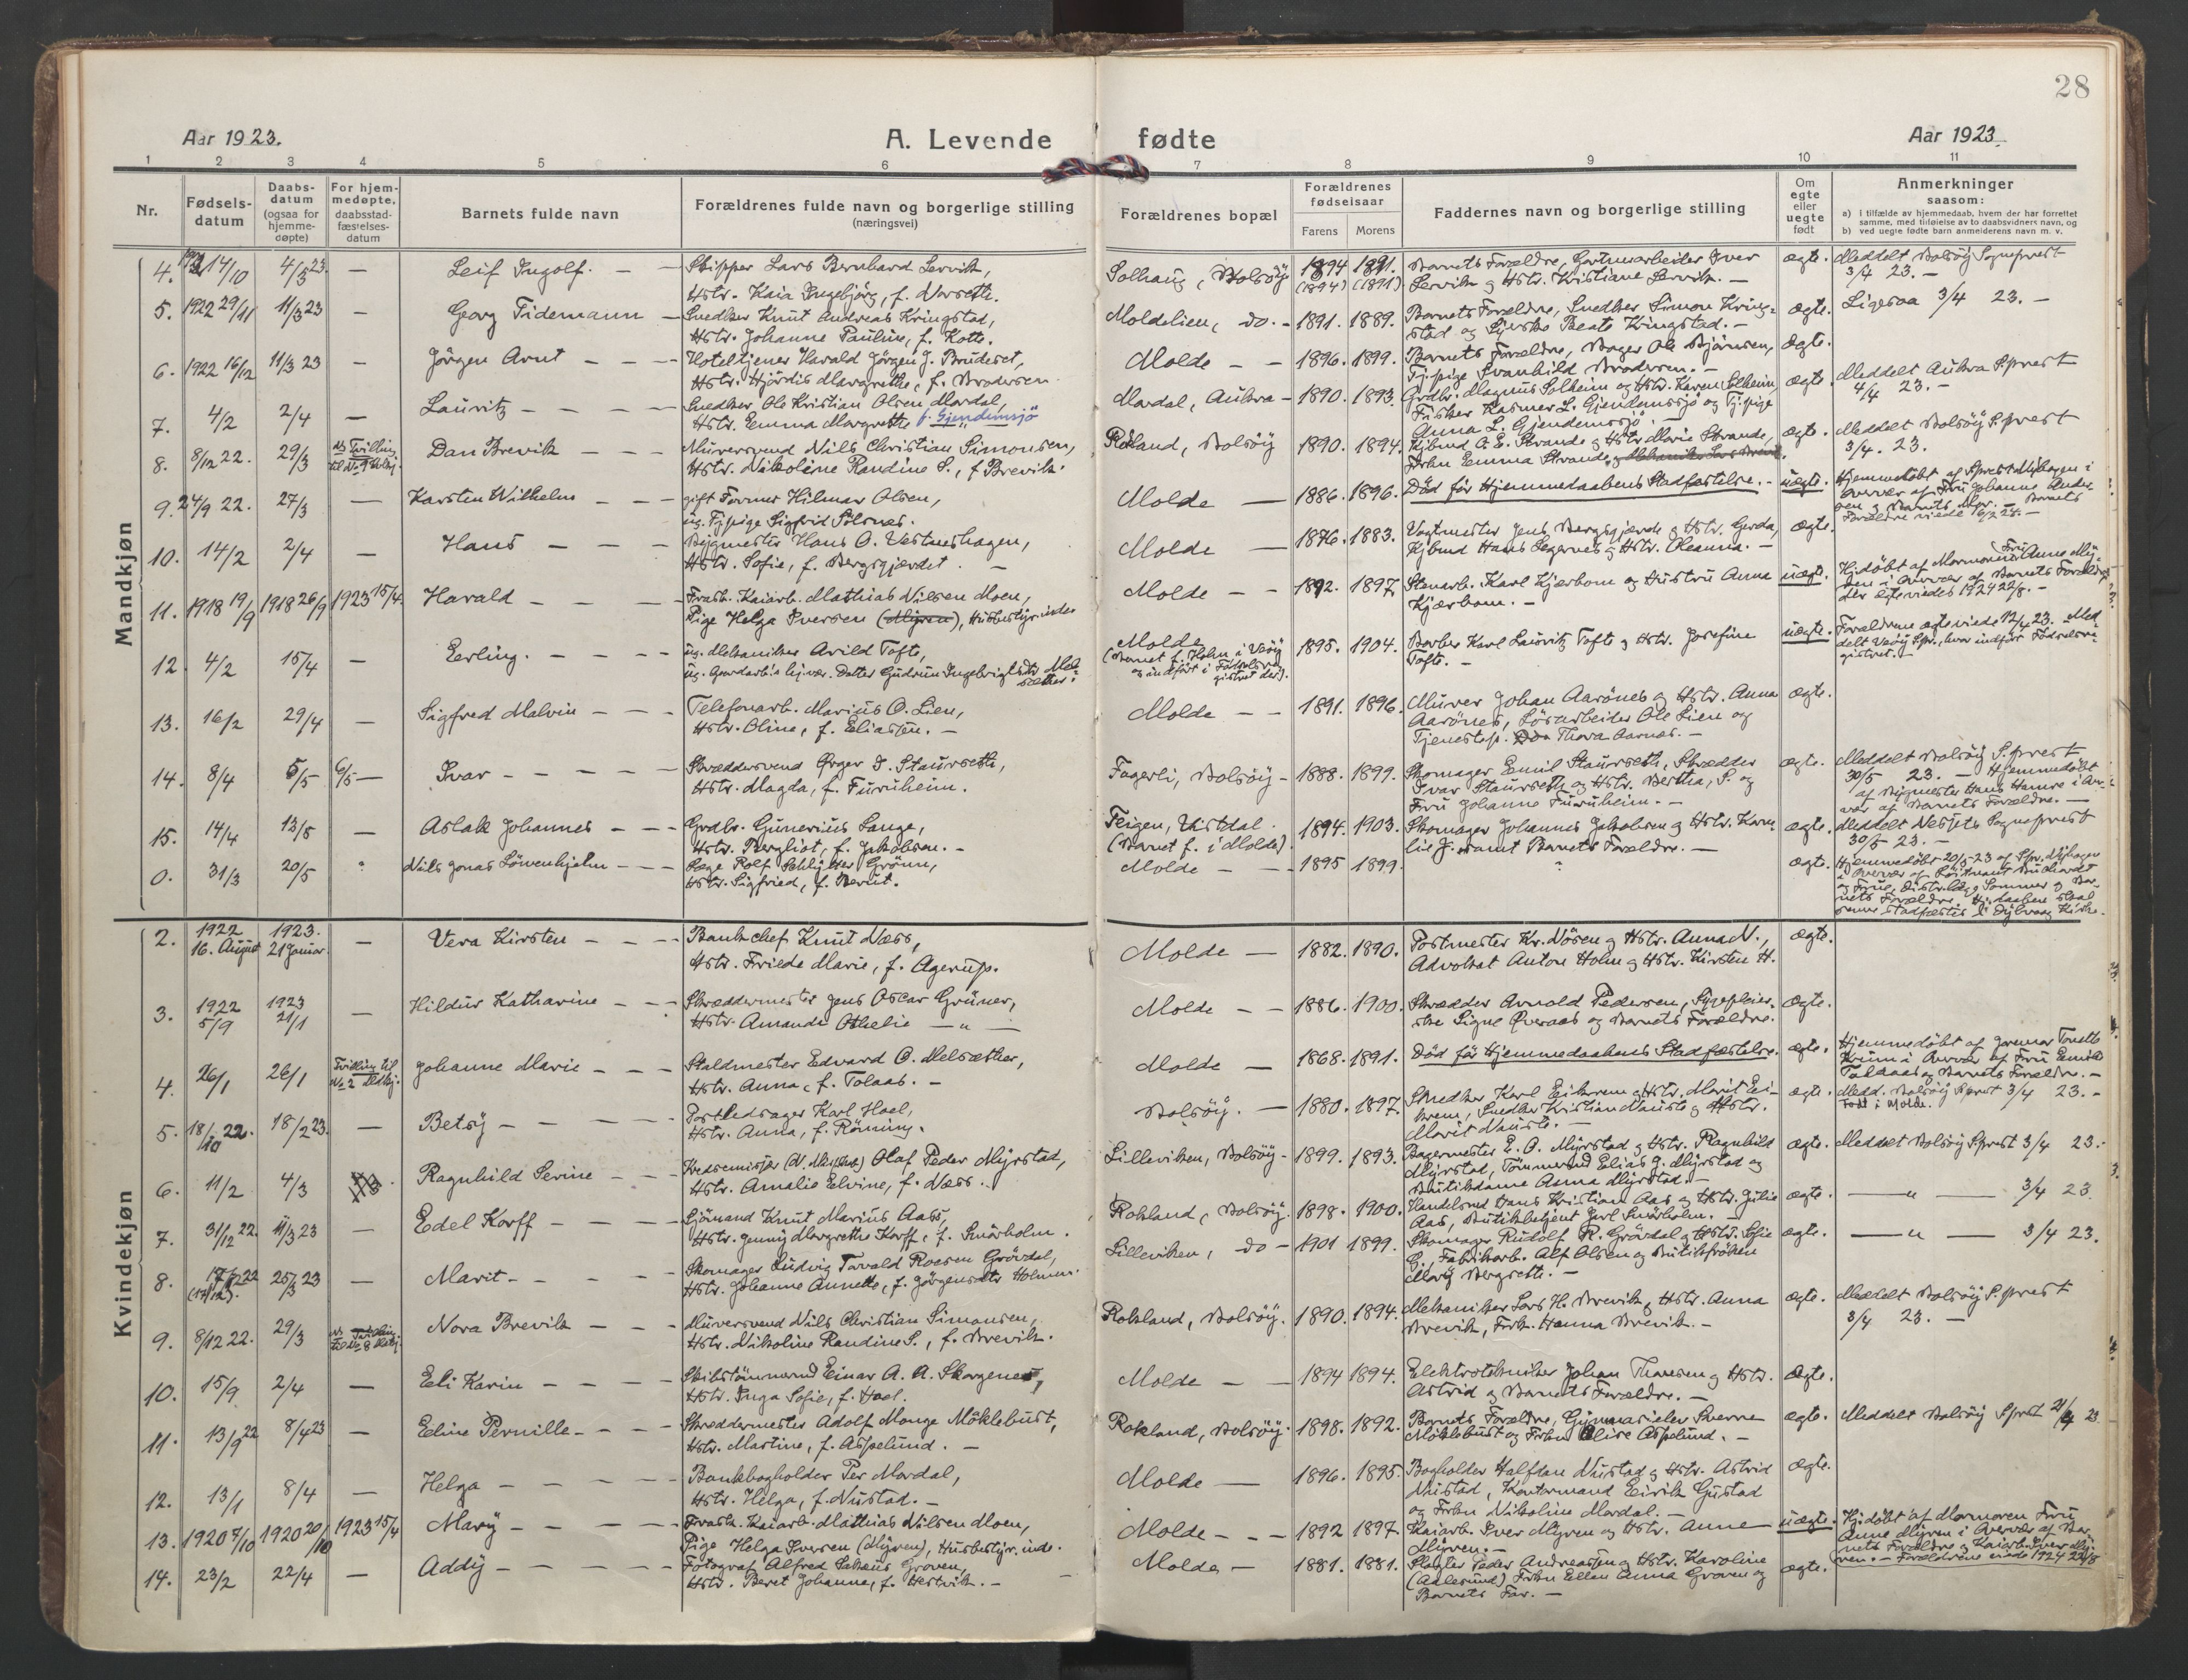 28
Aar 1923.
A. Levende fødte
Aar 1923.
1 2 3 4 5 6 7 8 9 10 11
Nr.
Fødsels-
datum
Daabs-
datum
(ogsaa for
hjemme-
døpte)
For hjem-
medøpte,
daabsstad-
fæstelses-
datum
Barnets fulde navn
Forældrenes fulde navn og borgerlige stilling
(næringsvei)
Forældrenes bopæl
Forældrenes
fødselsaar
Farens Morens
Faddernes navn og borgerlige stilling
Om
egte
eller
uegte
født
Anmerkninger
saasom:
a) i tilfælde av hjemmedaab, hvem der har forrettet
samme, med tilføielse av to daabsvidners navn, og
b) ved uegte fødte barn anmelderens navn m. v.
Mandkjøn
4. 14/10 4/3 23. — Leif Ingolf. — — Skipper Lars Bernhard Lervik,
Hstr. Kaia Ingebjørg, f. Norseth.
Solhaug, Bolsöy 1894 1891.
(1894) (1891)
Barnets Forældre, Iver
Lervik og Hstr. Kristiane Lervik. —
ægte. Meddelt Bolsöy Sogneprest
3/4 23. —
5. 1922 29/11 11/3 23 — Georg Tidemann — Snedker Knut Andreas Kringstad,
Hstr. Johanne Pauline, f. Kotte.
Moldelien, do. — 1891. 1889.
Barnets Forældre, Snedker Simon Kring-
stad og Beate Kringstad. —
ægte. Ligesaa 3/4 23. —
6. 1922 16/12 11/3 23 — Jörgen Arnt — — — Hoteltjener Harald Jörgen J. Bruderet,
Hstr. Hjördis Margrethe, f. Brodersen.
Molde — — 1896. 1899.
Barnets Forældre, Bager Ole Björnsen,
Tj.pige Svanhild Brodersen. —
ægte.
7. 4/2 2/4 — Lauritz — — — — Snedker Ole Kristian Olsen Mordal,
Hstr. Emma Margrethe f. Gjendemsjö
Mordal, Aukra — 1890. 1893.
Grdbr. Magnus Solheim og Hstr. Karen Solheim
Fisker Rasmus L. Gjendemsjö og Tj.pige
Anna L. Gjendemsjö.
ægte. Meddelt Aukra S.prest
4/4 23. —
8. 8/12 22. 29/3 Tvilling
til No 9 Kvkj. Dan Brevik — — — Murersvend Nils Christian Simonsen,
Hstr. Nikoline Randine S., f. Brevik.
Rokland, Bolsöy 1890. 1894.
Kjbmd A. E. Strande og Hstr. Marie Strande,
Frkn Emma Strande
ægte. Meddelt Bolsöy S.prest
3/4. 23.
9. 24/9 22. 27/3 — Karsten Wilhelm — — — gift Former Hilmar Olsen,
ug. Tj.pige Sigfrid Sölsnes.
Molde — 1886. 1896. Död för Hjemmedaabens Stadfæstelse. — uægte.
Hjemmedöbt af S.prest Nyhagen i
Overvær af Fru Johanne Ander-
sen og Barnets Mor. — Barnets
Forældre viede 16/2 24. —
10. 14/2 2/4 — Hans — — — — Bygmester Hans O. Vestneshagen,
Hstr. Sofie, f. Bergsgjærdet. —
Molde — 1876. 1883.
Vagtmester Jens Bergsgjærde og Hstr. Gerda,
Kjbmd Hans Legernes og Hstr. Oleanna. —
ægte.
11. 1918 19/9 1918 26/9 1923 15/4. Harald — — — — Frask. Kaiarb. Mathias Nilsen Moen,
Pige Helga Iversen (Myren), Husbestyrinde
Molde — — 1892. 1897
Stenarb. Karl Kjærbom og Hustru Anna
Kjærbom. —
uægte. Hjdöbt af Mormoren Fru Anne My-
ren i Overvær af Barnets Forældre
der egteviedes 1924 22/8. —
12. 4/2 15/4 — Erling. — — — — ug. Mekaniker Arvild Tofte,
ug. Gaardarb.s hj.vær. Datter Gudrun Ingebrigtsdtr Mel-
sæther.
Molde
(Barnet f. Holm i Veöy
og indfört i Födselsre-
gistret der).
1895. 1904.
Barber Karl Lauritz Tofte og Hstr. Josefine
Tofte. —
uægte. Forældrene ægteviede 12/4 23. Med-
delt Veöy S.pr., hvor indfört Födselsre-
gistret. —
13. 16/2 29/4 — Sigfred Malvin — — — Telefonarb. Marius O. Lien,
Hstr. Oline, f. Eliassen. —
Molde — — 1891. 1896.
Murer Johan Aarönes og Hstr. Anna
Aarönes, Lösarbeider Ole Lien og
Tjenestep. Thora Aarnes. —
ægte.
14. 8/4 5/5 6/5 — Ivar — — — — Skræddersvend Ørger I. Staurseth,
Hstr. Magda, f. Furuheim.
Fagerli, Bolsöy — 1888. 1899.
Skomager Emil Staurseth, Skrædder
Ivar Staurseth og Hstr. Bertha, S. og
Fru Johanne Furuheim. —
ægte. Meddelt Bolsöy S.prest
30/5 23. — Hjemmedöbt
af Bygmester Hans Hamre i Over-
vær af Barnets Forældre. —
15. 14/4 13/5 — Aslak Johannes — — — Grdbr. Gunerius Lange,
Hstr. Bergliot, f. Jakobsen. —
Teigen, Vistdal.
(Barnet f. i Molde)
1894. 1903.
Skomager Johannes Jakobsen og Hstr. Karo-
lie J. samt Barnets Forældre. —
ægte. Meddelt Nessets Sogneprest
30/5 23. —
0. 31/3 20/5 ? Nils Jonas Löwenhjelm — — — Læge Rolf Schlytter Grönn,
Hstr. Sigfried, f. Berut.
Molde — — 1895 1899. ? ægte.
Hjemmedöbt 20/5 23 af S.pr. Nyhagen
i Overvær af
og Frue, Distr.læge Sommer og Bar-
nets Forældre. Hj.daaben skal
senere stadfæstes i Dybvaag Kirke.
Kvindekjøn
2. 1922
16. August 1923.
21 Januar — Vera Kirsten — — — Bankchef Knut Næss,
Hstr. Friede Marie, f. Agerup.
Molde — 1882. 1890.
Postmester Kr. Nören og Hstr. Anna N.,
Advokat Anton Holm og Hstr. Kirsten H.
ægte.
3. 1922
5/9 1923
21/1 — Hildur Katharine — — — Skræddermester Jens Oscar Grüner,
Hstr. Amanda Othelie — " —
Molde — — 1886. 1900.
Skrædder Arnold Pedersen, Sygepleier-
ske Signe Överaas og Barnets Forældre.
ægte.
4. 26/1 26/1 Tvilling til
No 2 Johanne Marie — — Staldmester Edvard O. Melsæther,
Hstr. Anna, f. Tolaas. —
Molde — 1868. 1891. Död för Hjemmedaabens Stadfæstelse. ægte.
Hjemmedöbt af Jormor Tonette
Krum i Overvær af Fru Emilie
Talaas og Barnets Forældre. —
5. 18/10 22. 18/2 23. — Betsy — — — — Postbedrager Karl Hoel,
Hstr. Anna, f. Röming.
Bolsöy. — 1880. 1897.
Smedker Karl Eikrem og Hstr. Marit Ei-
krem, Snedker Kristian Nauste og Hstr.
Marit Nauste. —
ægte. Medd. Bolsöy S.prest 3/4 23. —
Födt i Molde.
6. 11/2 4/3 Ragnhild Serine — — Kredsemissær Olaf Peder Myrstad,
Hstr. Amalie Elvine, f. Næss. —
Lilleviken, Bolsöy — 1899. 1893.
Bagermester E. O. Myrstad og Hstr. Ragnhild
Myrstad, Tömmermd Elias J. Myrstad og
Butikdame Anna Myrstad. —
ægte. Meddelt Bolsöy S.prest 3/4 23. —
7. 31/12 22. 11/3 23 — Edel Korff — — — — Sjömand Knut Marius Aas,
Hstr. Jenny Margrethe Korff, f. Smörholm.
Rokland, Bolsöy. 1898. 1900.
Handelsmd Hans Kristian Aas og Hstr. Julie
Aas, Butikbetjent Jarl Smörholm. —
ægte. — " — 3/4 23.
8. 17/12 22
(17/12). 25/3 23 — Marit — — — — Skomager Ludvig Torvald Roesen Grövdal,
Hstr. Johanne Annette, f. Jörgensdtr Holmen.
Lilleviken, do — 1901 1899.
Skomager Rudolf R. Grövdal og Hstr. Sofie
G., Fabrikarb. Alf Olsen og Butikfröken
Mary Bergseth. —
ægte. — " — 3/4 23.
9. 8/12 22. 29/3 Tvilling
til No 8 Nora Brevik — — — Murersvend Nils Christian Simonsen,
Hstr. Nikoline Randine S., f. Brevik.
Rokland, Bolsöy. 1890. 1894.
Mekaniker Lars H. Brevik og Hstr. Anna
Brevik, Frk. Hanna Brevik. —
ægte. Meddelt Bolsöy S.prest
3/4 23. —
10. 15/9 2/4 — Eli Karin — — — — Skibstömmermd Einar A. A. Skorgenes,
Hstr. Inga Sofie, f. Hoel.
Molde — — 1894 1894.
Elektrotekniker Johan Thoresen og Hstr.
Astrid og Barnets Forældre. —
ægte.
11. 13/9 22 8/4 23 — Eline Pernille — — — Skreddermester Adolf Monge Möklebust,
Hstr. Martine, f. Aspelund. —
Rokland, Bolsöy. 1898. 1892.
Barnets Forældre, Gymnasielev Sverre
Möklebust og Frkn Elise Aspelund. —
ægte. Meddelt Bolsöy S.prest 21/4 23
12. 13/1 8/4 — Helga — — — — Bankbogholder Per Mordal,
Hstr. Helga, f. Nustad. —
Molde — 1896. 1895.
Bogholder Halfdan Nustad og Hstr. Astrid
Nustad, Kontormand Eivik Gustad
og Frkn Nikoline Mordal. —
ægte.
13. 1920 7/10 1920 20/10 1923 15/4 Mary — — — — Frask. Kaiarb. Mathias Nilsen Moen,
Pige Helga Iversen (Myren), Husbestyr.inde.
Molde — — — 1892 1897.
Kaiarb. Iver Myren og Hstr. Anne
Myren. —
uægte. Hjdöbt af Mormoren Fru
Anne Myren i Overvær af Bar-
nets Forældre og Kaiarb. Iver My-
ren. — Forældrene viede 1924 22/8
14. 23/2 22/4 — Addy — — — — Fotograf Alfred Groven,
Hstr. Beret Johanna, f. Hestvik. —
Molde — 1881. 1881.
Slagter Peder Andreassen og Hstr. Karoline
(Aalesund) Frkn Ellen Anna Groven og
Barnets Far. —
ægte.